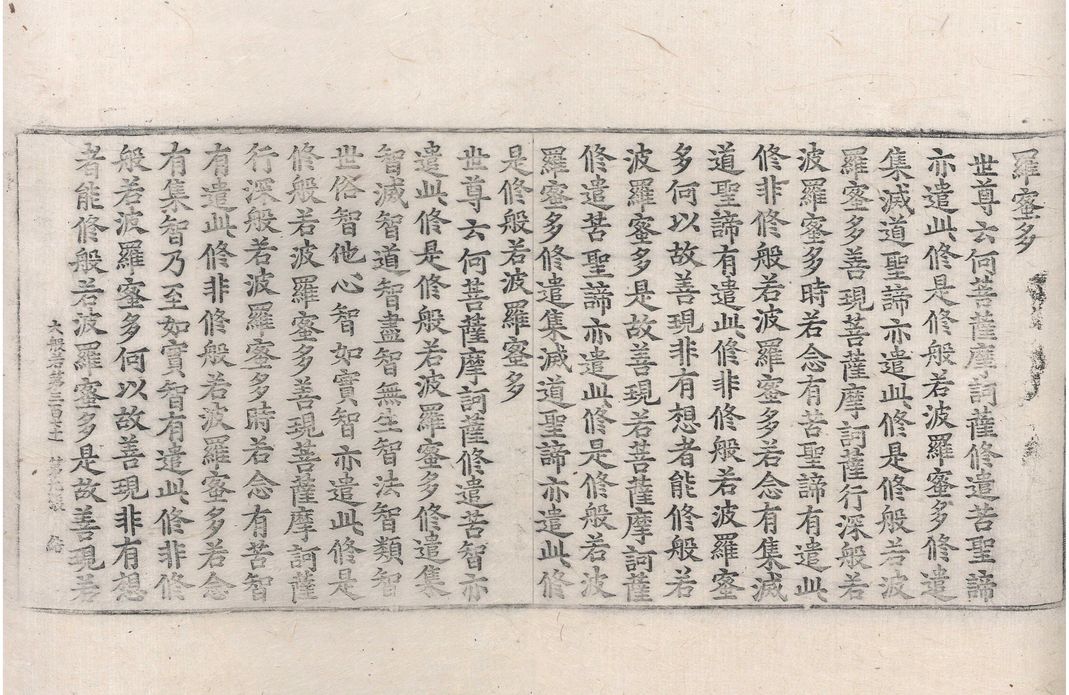 羅蜜多
世尊云何菩薩摩訶薩修遣苦聖諦
亦遣此修是修般若波羅蜜多修遣
集滅道聖諦亦遣此修是修般若波
羅蜜多善現菩薩摩訶薩行深般若
波羅蜜多時若念有苦聖諦有遣此
修非修般若波羅蜜多若念有集滅
道聖諦有遣此修非修般若波羅蜜
多何以故善現非有想者能修般若
波羅蜜多是故善現若菩薩摩訶薩
修遣苦聖諦亦遣此修是修般若波
羅蜜多修遣集滅道聖諦亦遣此修
是修般若波羅蜜多
世尊云何菩薩摩訶薩修遣苦智亦
遣此修是修般若波羅蜜多修遣集
智滅智道智盡智無生智法智類智
世俗智他心智如實智亦遣此修是
修般若波羅蜜多善現菩薩摩訶薩
行深般若波羅蜜多時若念有苦智
有遣此修非修般若波羅蜜多若念
有集智乃至如實智有遣此修非修
般若波羅蜜多何以故善現非有想
者能修般若波羅蜜多是故善現若
大般若第三百六十